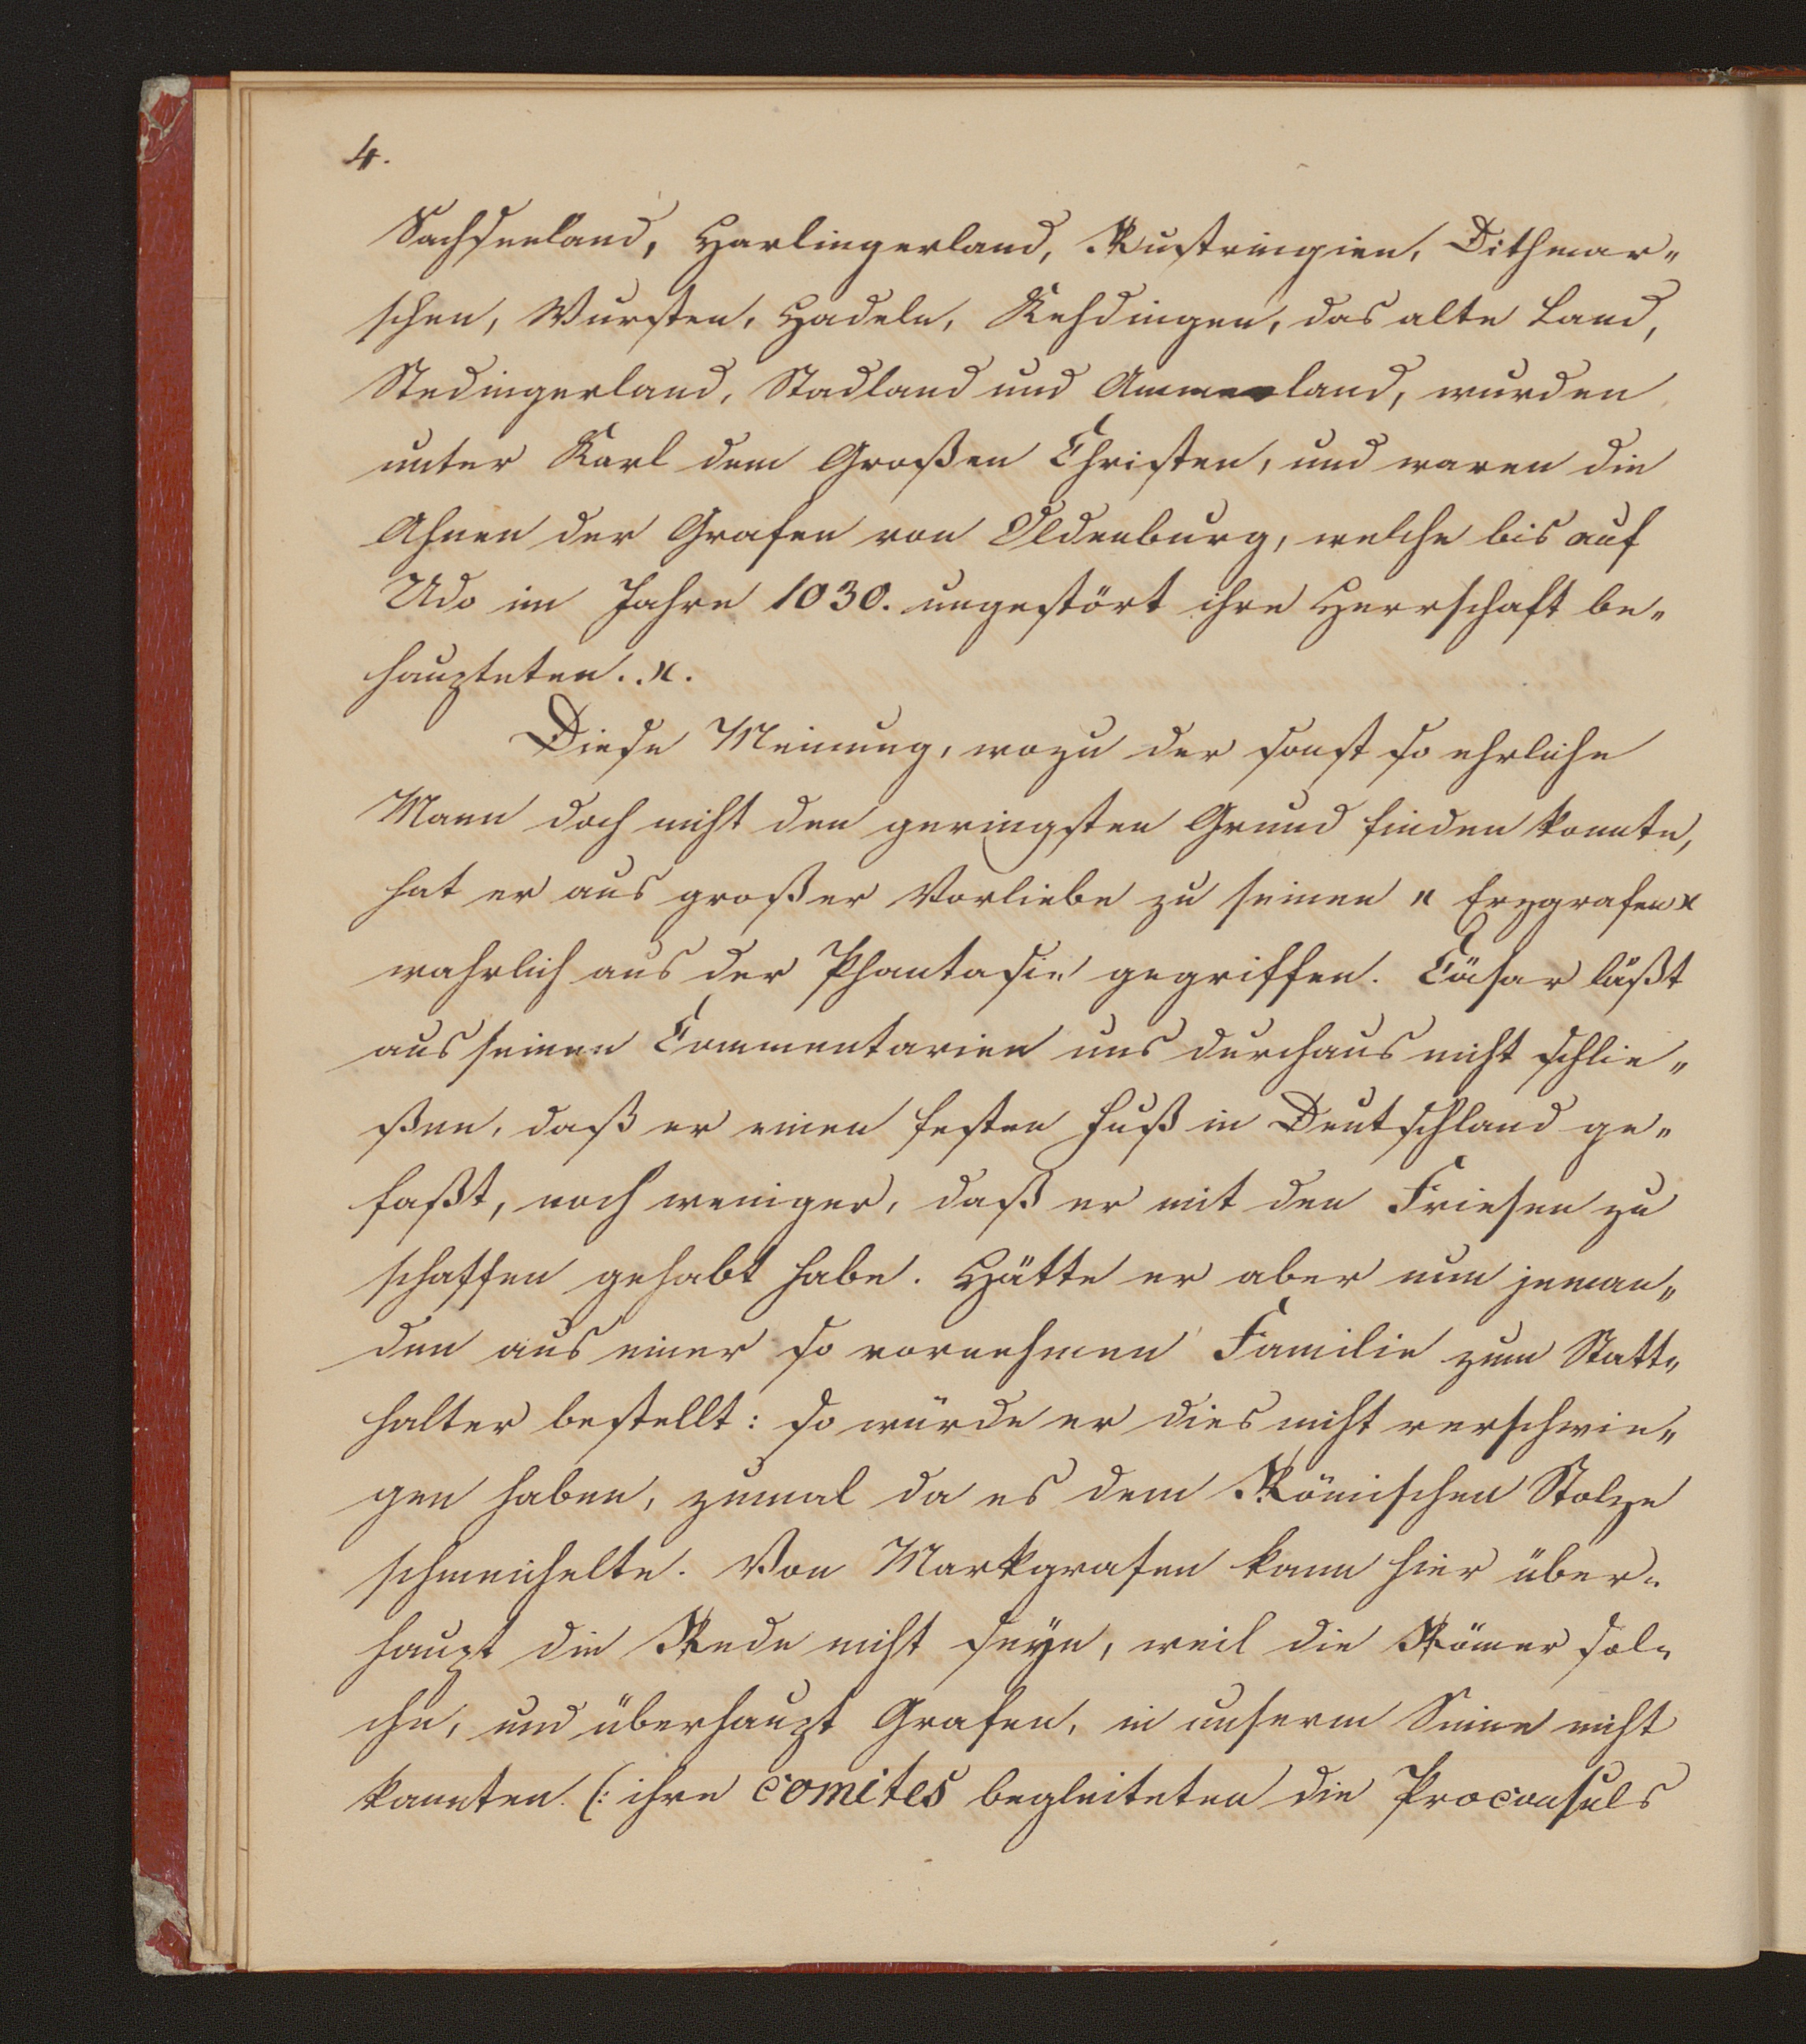 4.
Sachsenland, Harlingerland, Rustringien, Dithmar„
schen, Wursten, Hadeln, Kehdingen, das alte Land,
Stedingerland, Stadland und Ammerland, wurden
unter Karl dem Großen Christen, und waren die
Ahnen der Grafen von Oldenburg, welche bis auf
Udo im Jahre 1030. ungestört ihre Herrschaft be„
haupteten. „.
Diese Meinung, wozu der sonst so ehrliche
Mann doch nicht den geringsten Grund finden konnte,
hat er aus großer Vorliebe zu seinen „ Erzgrafen„
wahrlich aus der Phantasie gegriffen. Cäsar läßt
aus seinen Commentarien uns durchaus nicht schlie„
ßen, daß er einen festen Fuß in Deutschland ge„
faßt, noch weniger, daß er mit den Friesen zu
schaffen gehabt habe. Hätte er aber nun jeman„
den aus einer so vornehmen Familie zum Statt„
halter bestellt: so würde er dies nicht verschwie„
gen haben, zumal da es dem Römischen Stolze
schmeichelte. Von Markgrafen kann hier über„
haupt die Rede nicht seyn, weil die Römer sol„
che, und überhaupt Grafen, in unserm Sinne nicht
kannten. (: ihre comites begleiteten die Proconsuls